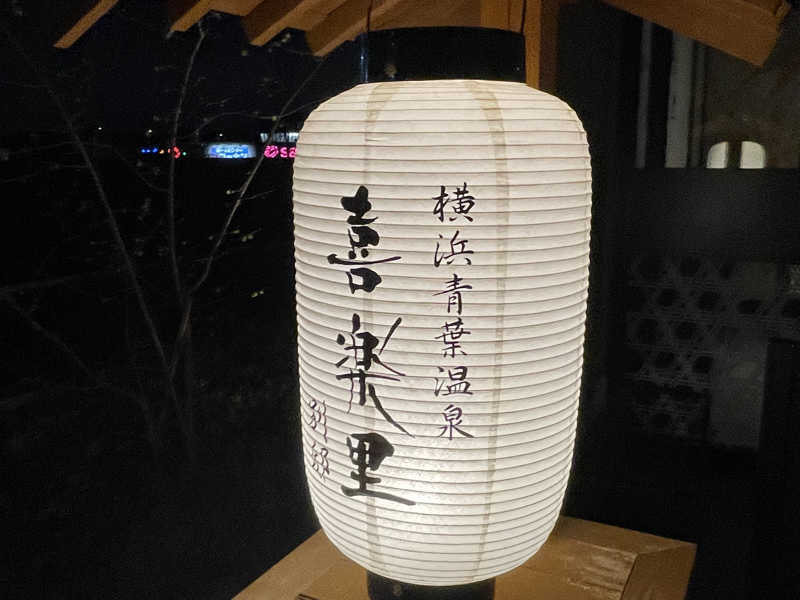 横浜青葉温泉
喜楽里